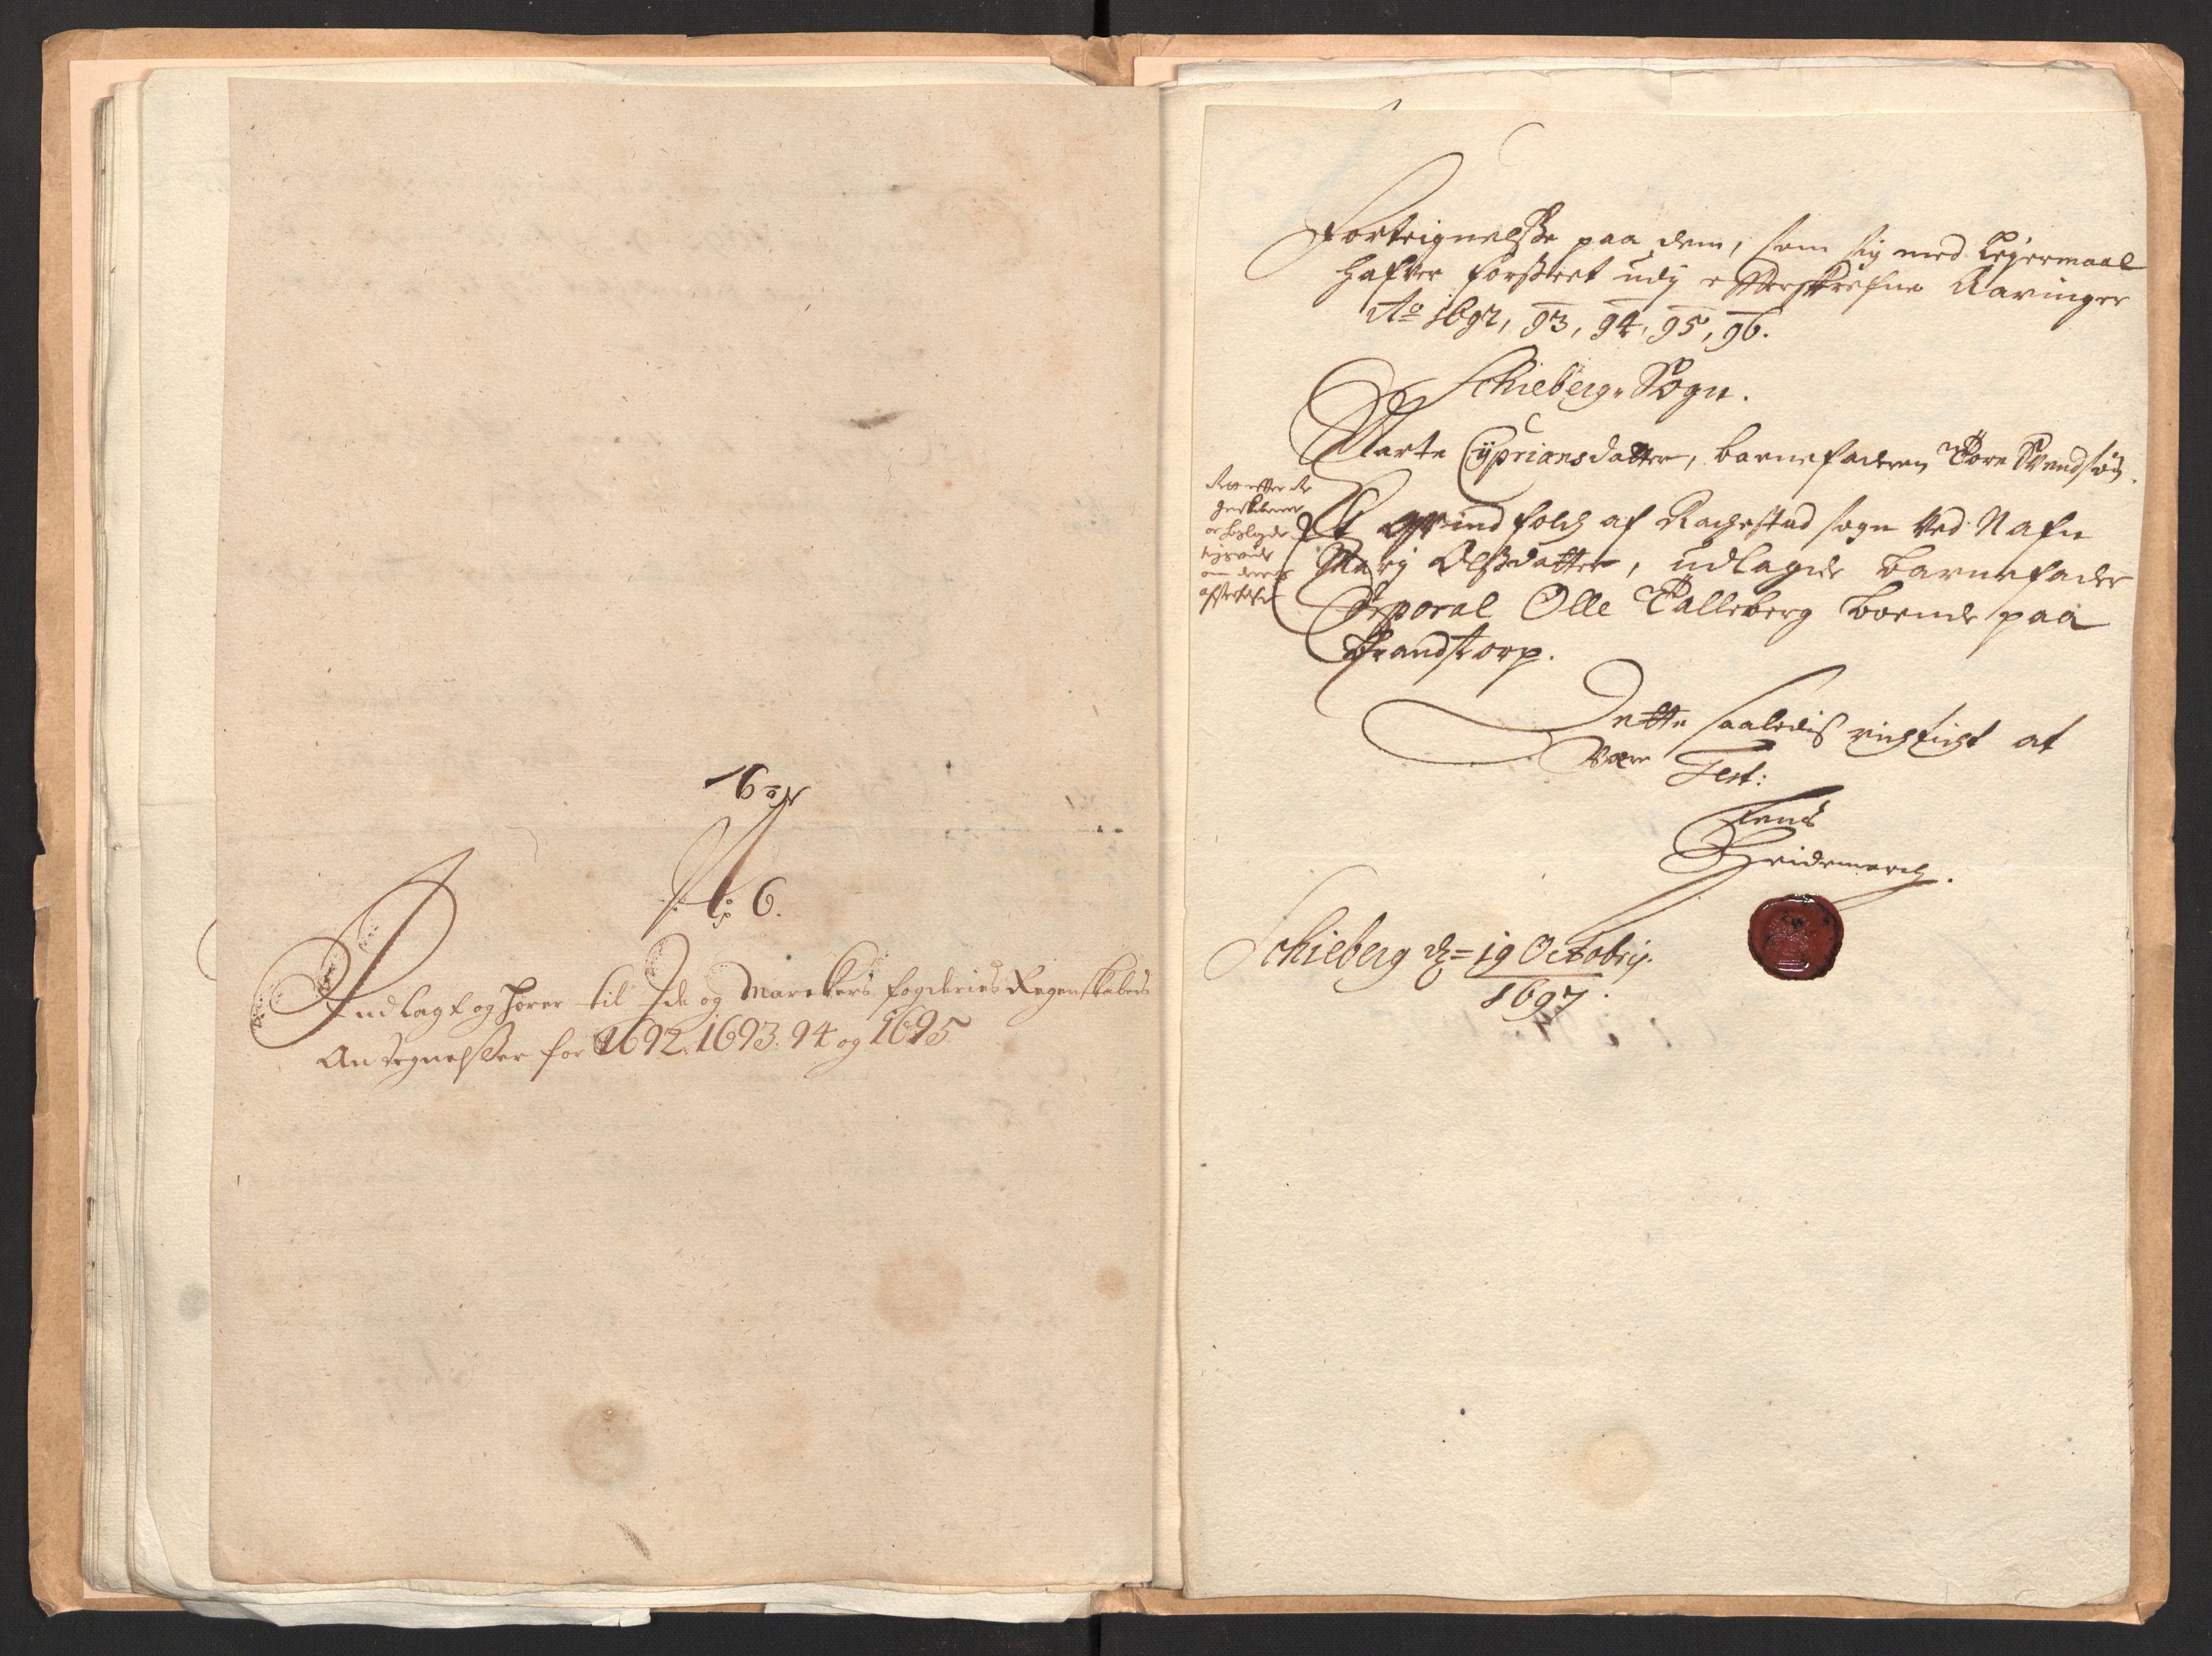 1692
No: 6.
Indlagt og hører til Ide og Marckers fogderies Regenskabers
Antegnelsser for 1692. 1693. 94 og 1695
Forteignelsse paa dem, som sig med Leyermaal
hafver forsseet udj efterskrefne Aaringer
Ao 1692, 93, 94, 95, 96.
Schieberg-Sogn.
Marte Cypriansdatter, barnefaderen Tore Svendsøn.
Et qvindfolch af Rachestad sogn ved Nafn
Marj Olssdatter, udlagde barnefader
Corporal Olle Talleberg boende paa
Brandstorp.
Dette saaledis rigtigt at
være Test:
Jens
Heidemarch.
Schieberg d= 19 Octobris.
1697.